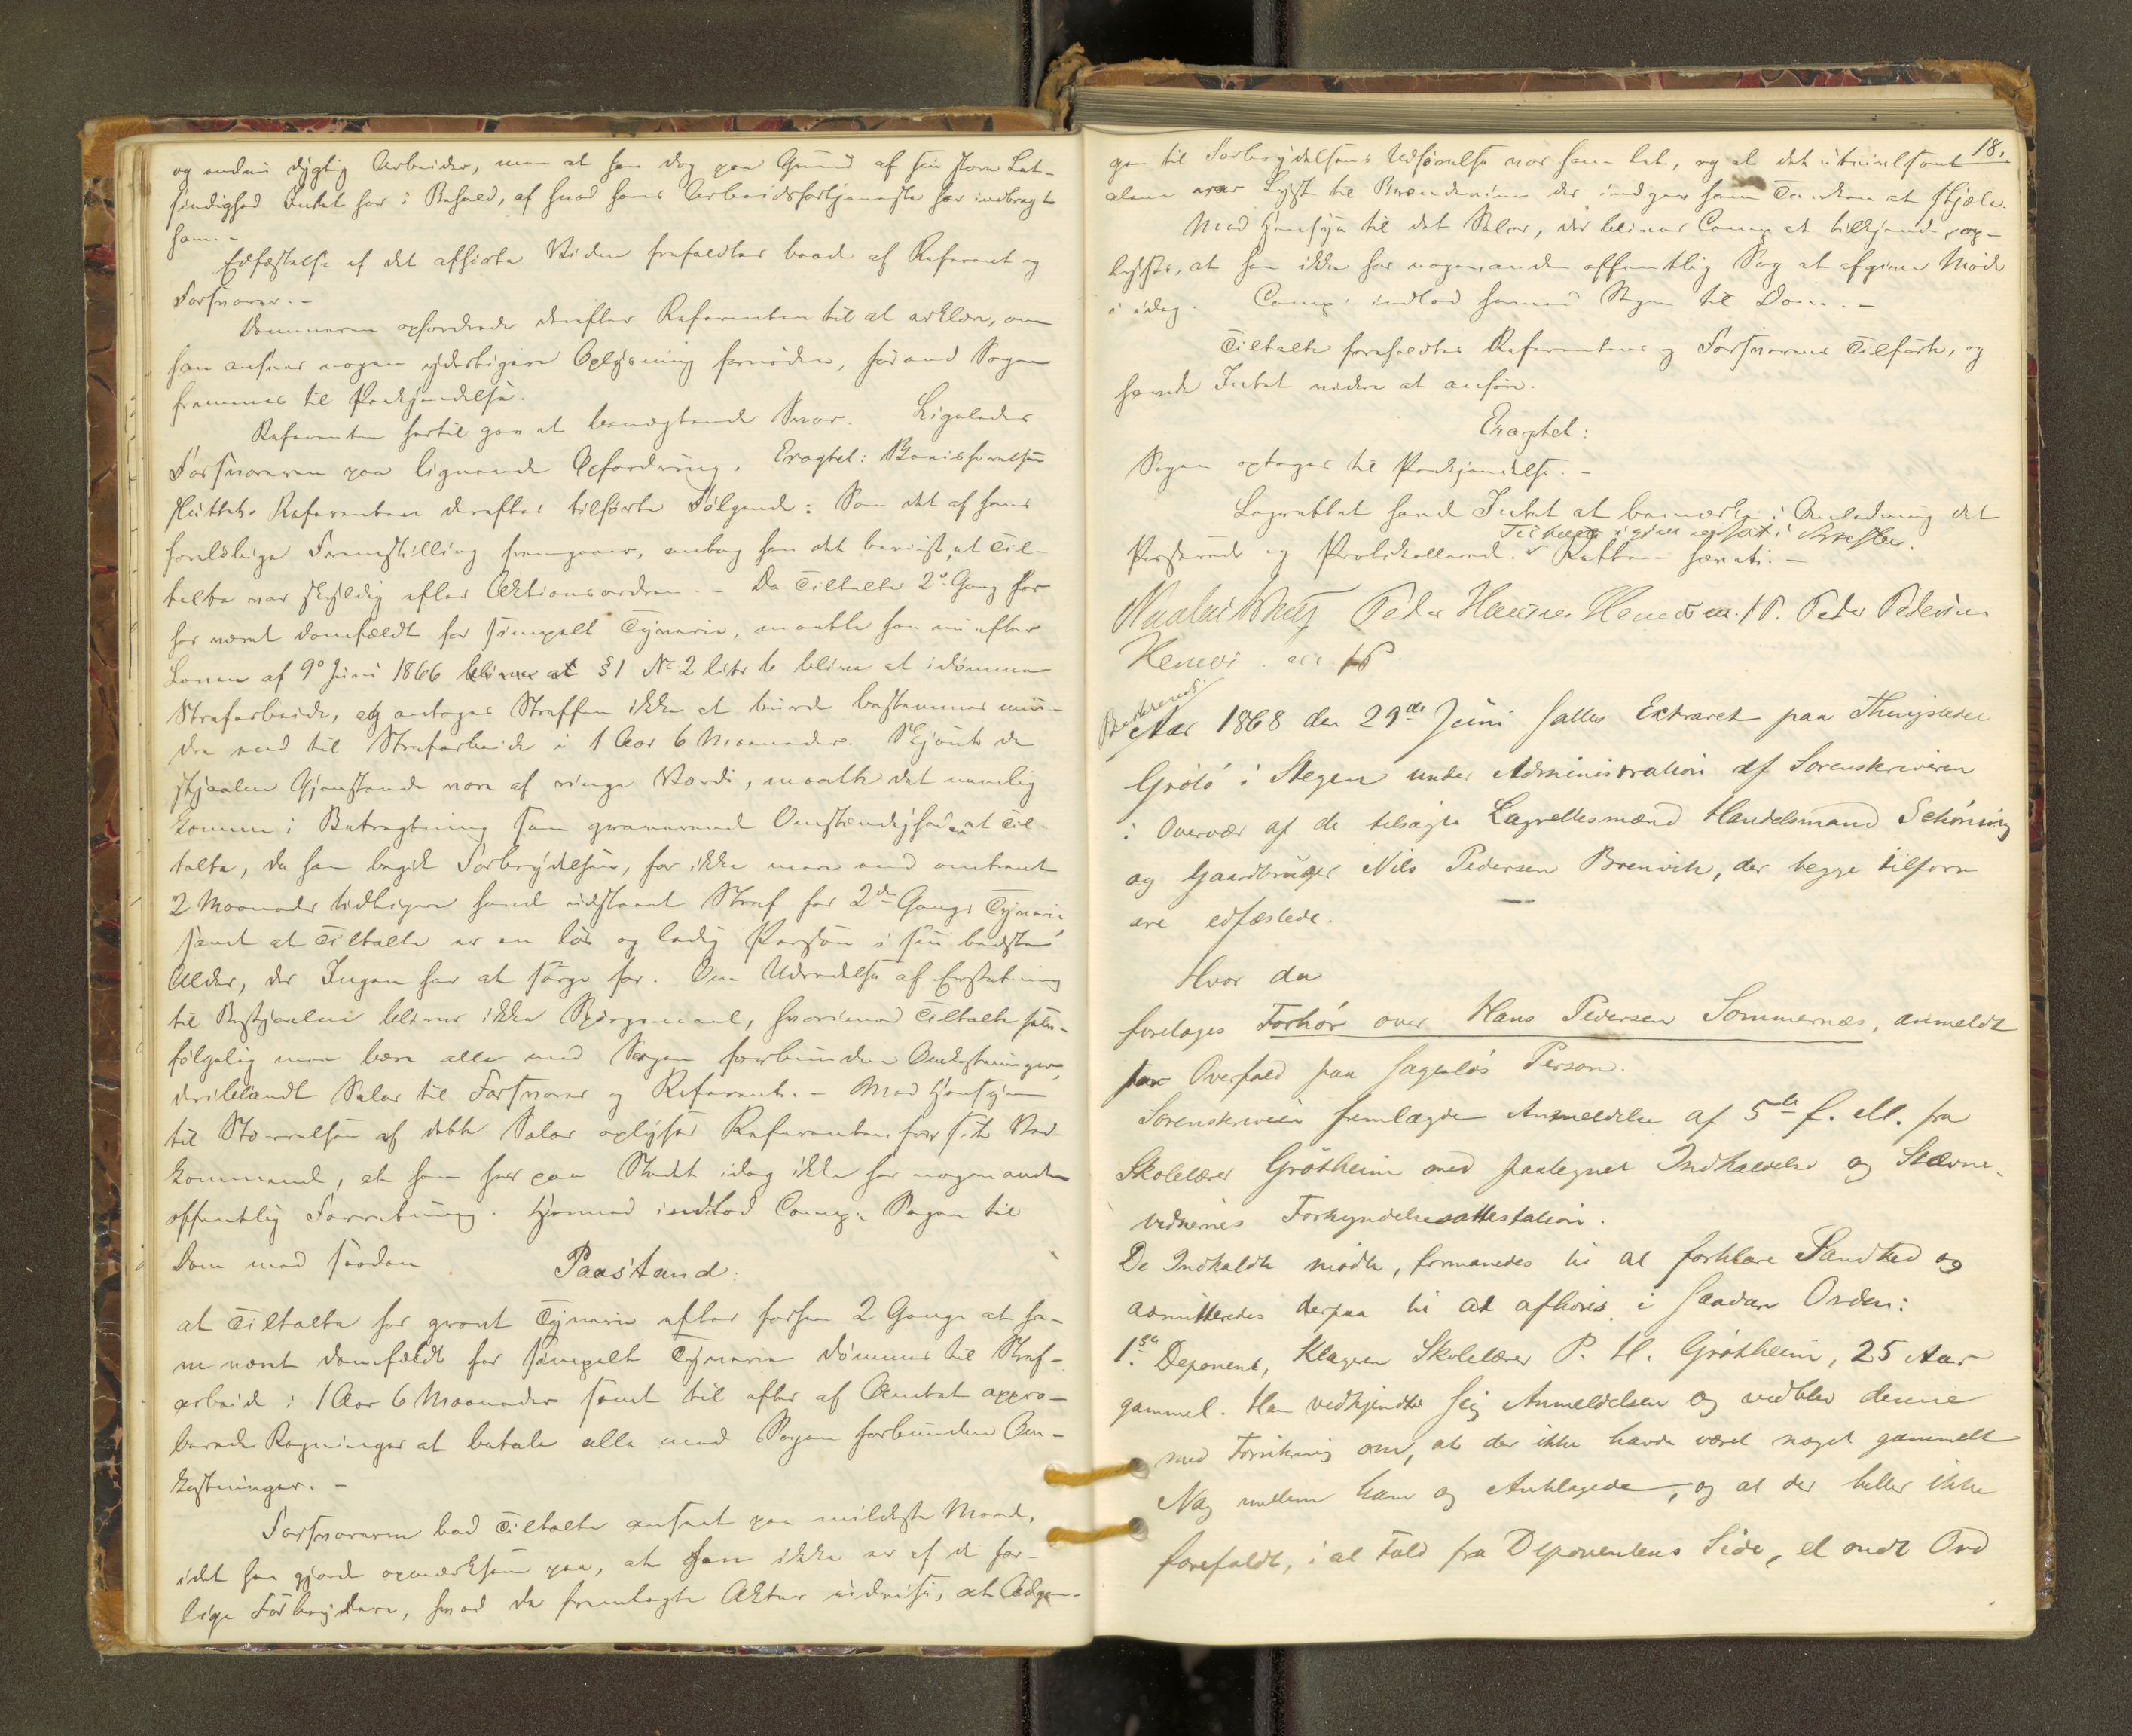 og endnu dygtig Arbeider, men at han dog paa Grund af sin store Let-
sindighed Intet har i Behold, af hvad hans Arbeidsfortjeneste har indbragt
ham. -
Edfæstelse af det afhørte Vidne frafaldtes baade af Referent og
Forsvarer. -
Dommeren opfordrede derefter Referenten til at erklære, om
han ansaae nogen yderligere Oplysning fornøden, førend Sagen
fremmes til Paakjendelse.
Referenten hertil gav et benægtende Svar. Ligeledes
Forsvareren paa lignende Opfordring. Eragtet: Bevisførelsen
sluttet. Referenten derefter tilførte Følgende: Som det af hans
foreløbige Fremstilling fremgaaer, antog han det beviist, at Til-
talte var skyldig efter Aktionsordren. - Da Tiltalte 2de Gang før
har været domfældt for simpelt Tyverie, maatte han nu efter
Loven af 9de Juni 1866 §1 No 2 litr b blive at idømme
Strafarbeide, og antoges Straffen ikke at burde bestemmes min-
dre end til Strafarbeide i 1 Aar 6 Maaneder. Skjønt de
stjaalne Gjenstande vare af ringe Værdi, maatte det nemlig
komme i Betragtning som graverende Omstændigheder at Til-
talte, da han begik Forbrydelsen, for ikke mere end omtrent
2 Maaneder tidligere havde udstaaet Straf for 2den Gangs Tyverie,
samt at Tiltalte er en løs og ledig Person i sin bedste
Alder, der Ingen har at sørge for. Om Udredelse af Erstatning
til Bestjaalne bliver ikke Spørgsmaal, hvorimod Tiltalte selv-
følgelig maa bære alle med Sagen forbundne Omkostninger,
deriblandt Salær til Forsvarer og Referent. - Med Hensyn
til Størrelsen af dette Salær oplyser Referenten for sit Ved-
kommende, at han her paa Stedet idag ikke har nogen anden
offentlig Forretning. Hermed indlod Comp. Sagen til
Dom med saadan
Paastand:
at Tiltalte for grovt Tyverie efter forhen 2 Gange at ha-
ve været domfældt for simpelt Tyverie dømmes til Straf-
arbeide i 1 Aar 6 Maaneder samt til efter af Amtet appro-
berede Regninger at betale alle med Sagen forbundne Om-
kostninger. -
Forsvareren bad Tiltalte anseet paa mildeste Maade,
idet han gjorde opmærksom paa, at han ikke er af de far-
lige Forbrydere, hvad de fremlagte Akter udvise, at Adgan-
18.
gen til Forbrydelsens Udførelse var ham let, og at det utvivlsomt
alene var Lyst til Brændeviin der indgav ham Tanken at stjæle.
Med Hensyn til det Salær, der bliver Comp. at tilkjende, op-
lystes, at han ikke har nogen anden offentlig Sag at afgive Møde
i idag. Comp. indlod hermed Sagen til Dom. -
Tiltalte foreholdtes Referentens og Forsvarerens Tilførte, og
havde Intet videre at anføre.
Eragtet:
Sagen optages til Paakjendelse. -
Lagrettet havde Intet at bemærke i Anledning det
Passerede og Protokollerede. Retten hævet. -
Tiltalte igjen indsat i Arrest.
Peder Hansen m. P. Peder Pedersen
m. P.
Beskrevet.
Aar 1868 den 29de Juni sattes Extraret paa Thingstedet
Grøtø i Stegen under Administration af Sorenskriveren
i Overvær af de tilsagte Lagrettesmænd Handelsmand Schøning
og Gaardbruger Nils Pedersen Brenvik, der begge tilforn
ere edfæstede.
Hvor da
foretoges Forhør over Hans Pedersen Sommernæs, anmeldt
for Overfald paa sagesløs Person.
Sorenskriveren fremlagde Anmeldelse af 5te f. M. fra
Skolelærer Grøtheim med paategnet Indkaldelse og Stævne-
vidnernes Forkyndelsesattestation.
De Indkaldte mødte, formanedes til at forklare Sandhed og
admitteredes derpaa til at afhøres i saadan Orden:
1ste Deponent, Klageren Skolelærer P. H. Grøtheim, 25 Aar
gammel. Han vedkjendte sig Anmeldelsen og vedblev denne
med Forsikring om, at der ikke havde været noget gammelt
Nag mellem ham og Anklagede, og at der heller ikke
forefaldt, i al Fald fra Deponentens Side, et ondt Ord